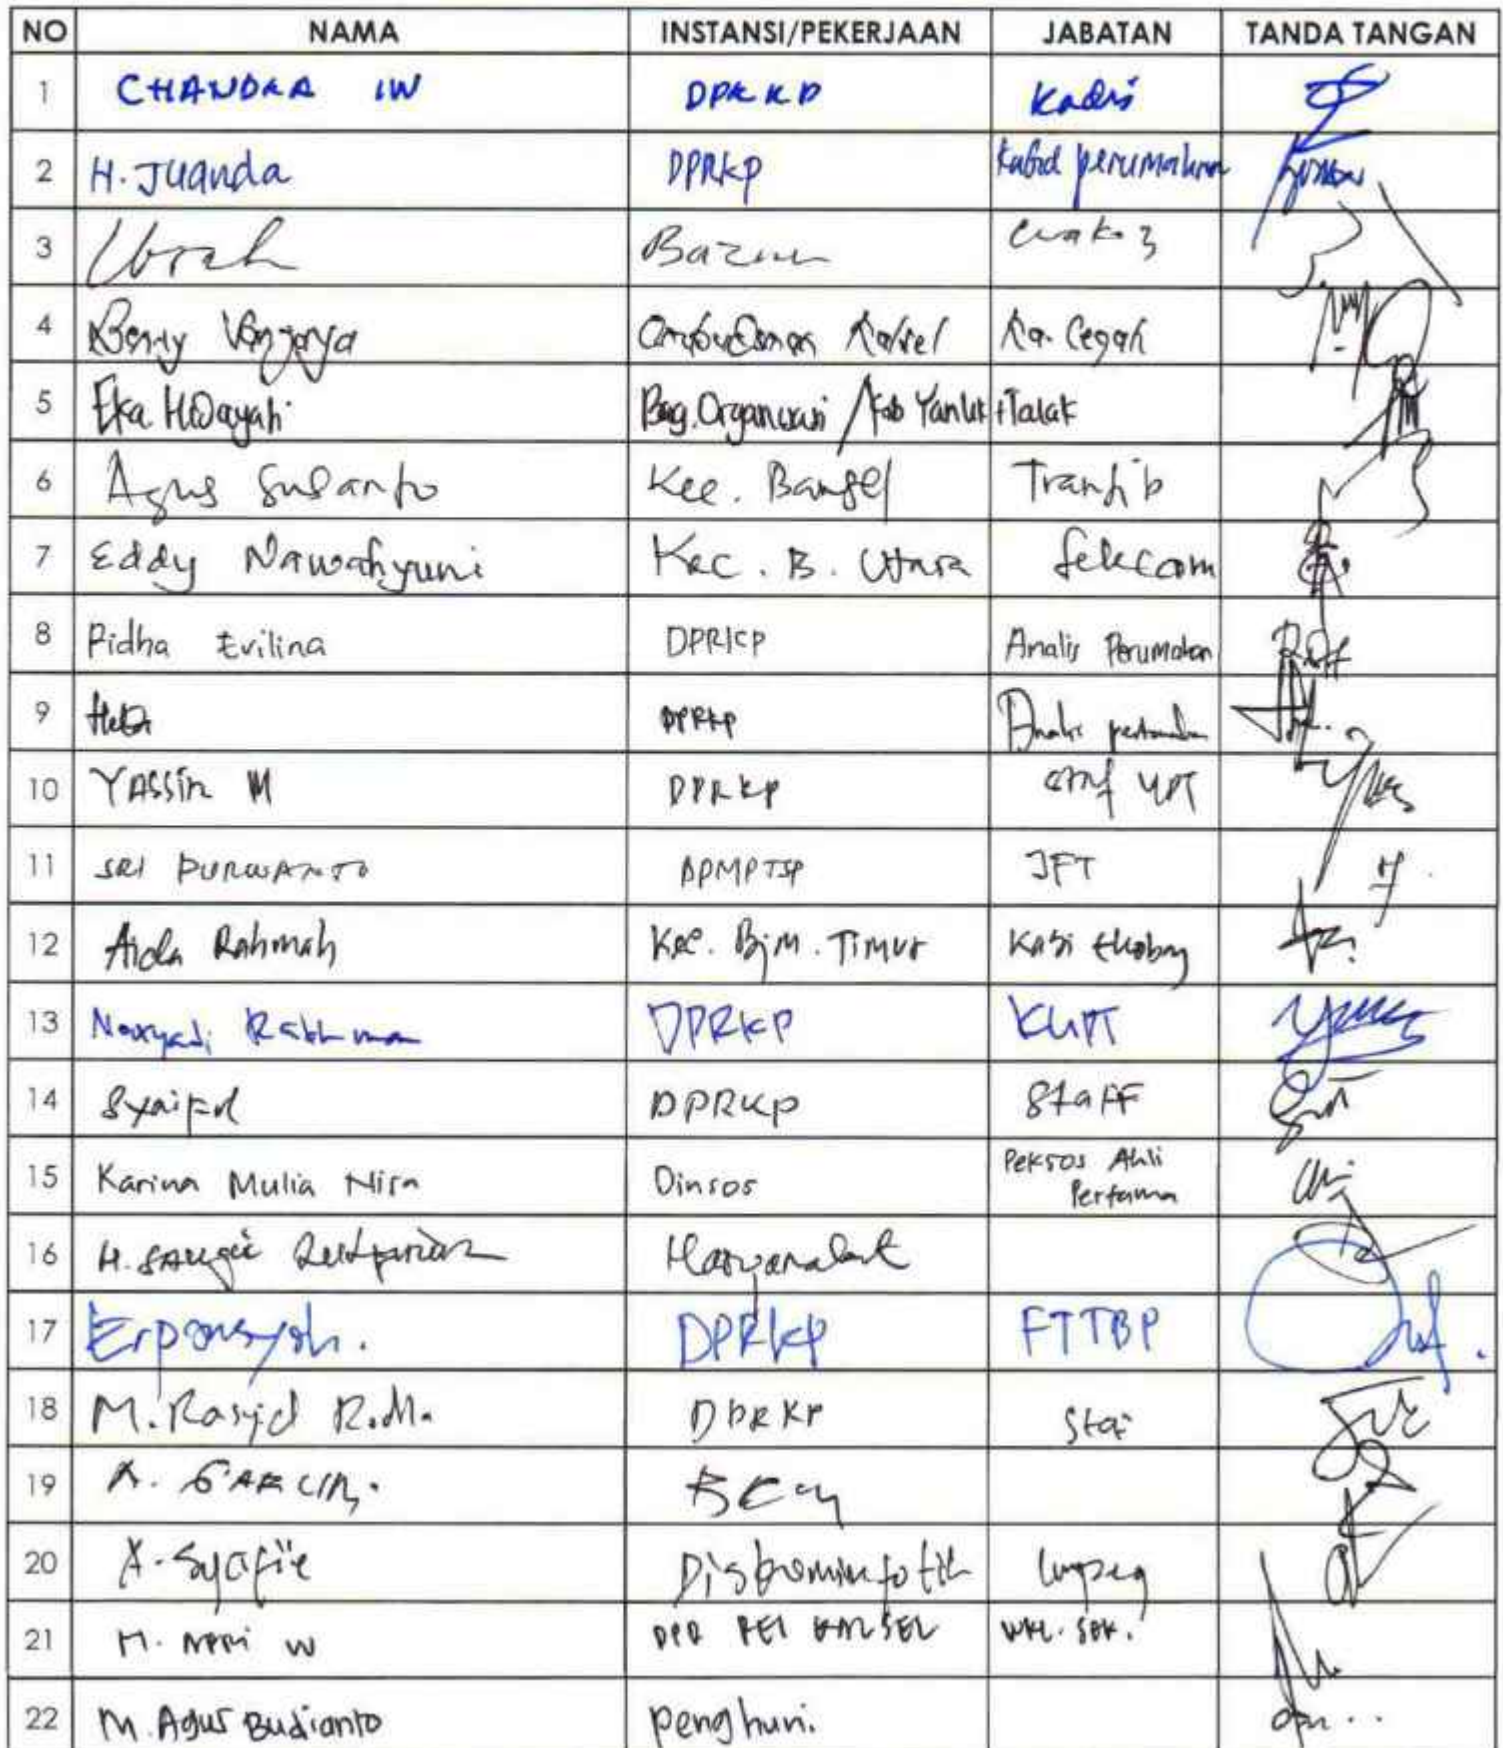 NO NAMA INSTANSI/PEKERJAAN JABATAN TANDA TANGAN
1 CHANDRA IW DPRKP Kadis
2 H. Juanda DPRKP Kabid perumahan
3 Baznas waka 3
4 Benny Ombudsman Kalsel Ka. Cegah
5 Eka Hidayati Bag. Organisasi / Kab Yanlik + Talak
6 Agus Susanto Kec. Bansel Trantib
7 Eddy Nawahyuni Kec. B. Utara Sekcam
8 Ridha Evilina DPRKP Analis Perumahan
9 DPRKP Analis
10 YASSin M DPRKP UPT
11 SRI PURWANTO DPMPTSP JFT
12 Aida Rahmah Kec. Bjm. Timur Kasi Ekobang
13 Rakhman DPRKP KUPT
14 Syaiful DPRKP Staff
15 Karina Mulia Nisa Dinsos Peksos Ahli
Pertama
16 H. Masyarakat
17 Erpansyah. DPRKP FTTBP
18 M. Rasyid R.M. DPRKP Staf
19 A.
20 A. Syafi'ie Diskominfotik
21 M. W DPD REI KALSEL WKL. SEK.
22 M. Agus Budianto penghuni.